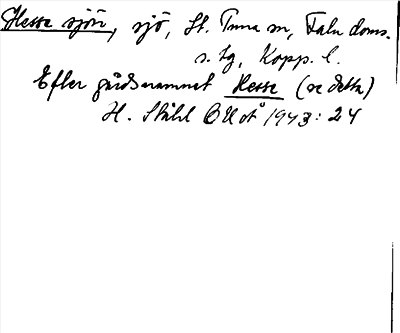 Hesse sjön, sjö, St. Tuna sn, Falu doms.
s. tg, Kopp. l.
Efter gårdsnamnet Hesse (se detta)
H. Ståhl OUoÅ 1943: 24